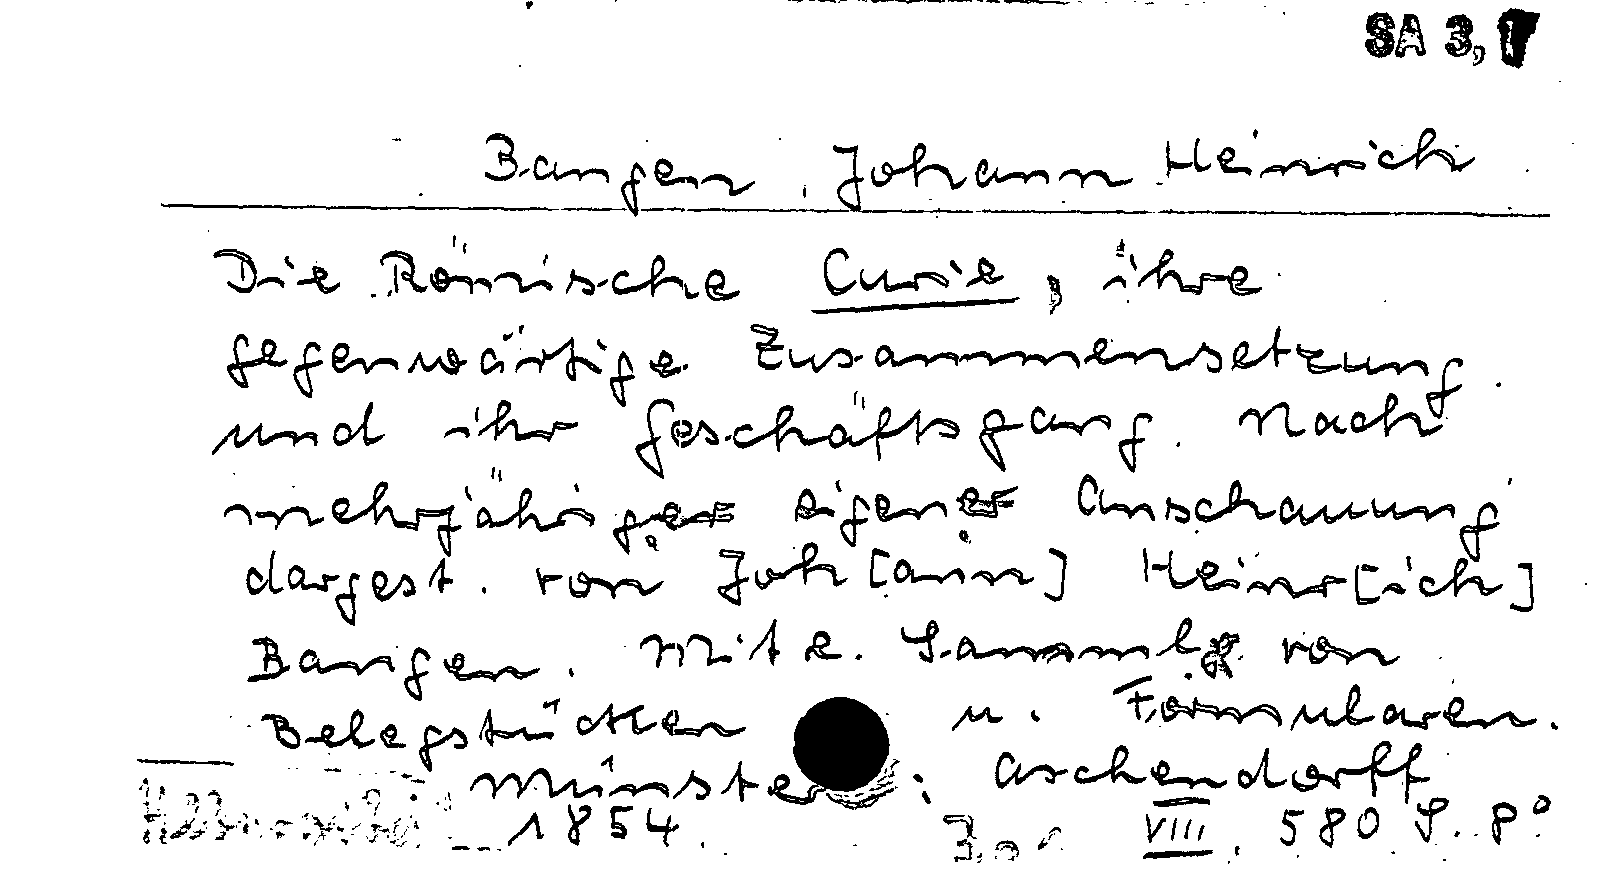 SA 3, 1
Bangen, Johann Heinrich
Die Römische Curie, ihre
gegenwärtige Zusammensetzung
und ihr Geschäftsgang. Nach
mehrjähriger eigener Anschauung
dargest. von Joh[ann] Heinr[ich]
Bangen. Mit e. Sammlg. von
Belegstücken u. Formularen.
Münster: Aschendorff
1854. VIII, 580 S. 8°